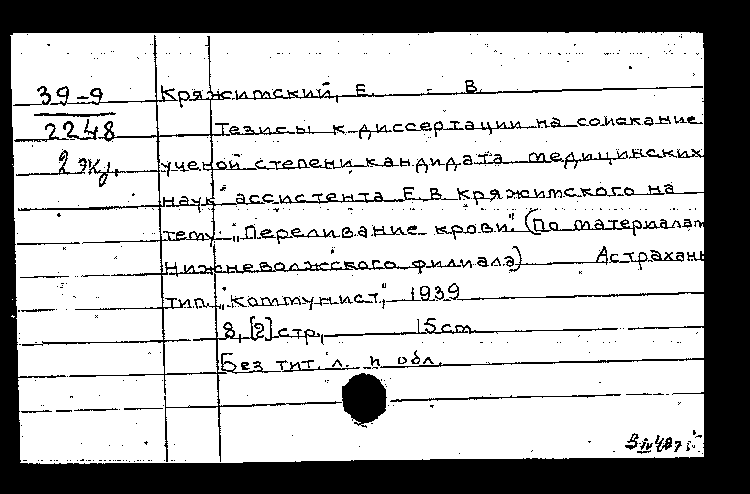 39-9
2248
2 экз.
Кряжитский, Е. В.
Тезисы к диссертации на соискание
ученой степени кандидата медицинских
наук ассистента Е. В. Кряжитского на
тему: „Переливание крови". (По материалам
Нижневолжского филиала) Астрахань
тип. „Коммунист", 1939
8, [2] стр., 15 см
Без тит. л. и обл.